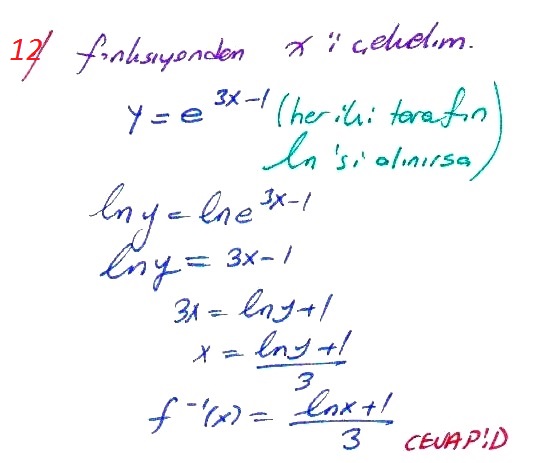 12/ fonksiyondan x'i çekelim.
y = e^{3x-1} (her iki tarafın
ln'si alınırsa)
ln y = ln e^{3x-1}
ln y = 3x-1
3x = ln y + 1
x = \frac{ln y + 1}{3}
f^{-1}(x) = \frac{ln x + 1}{3}
CEVAP:D